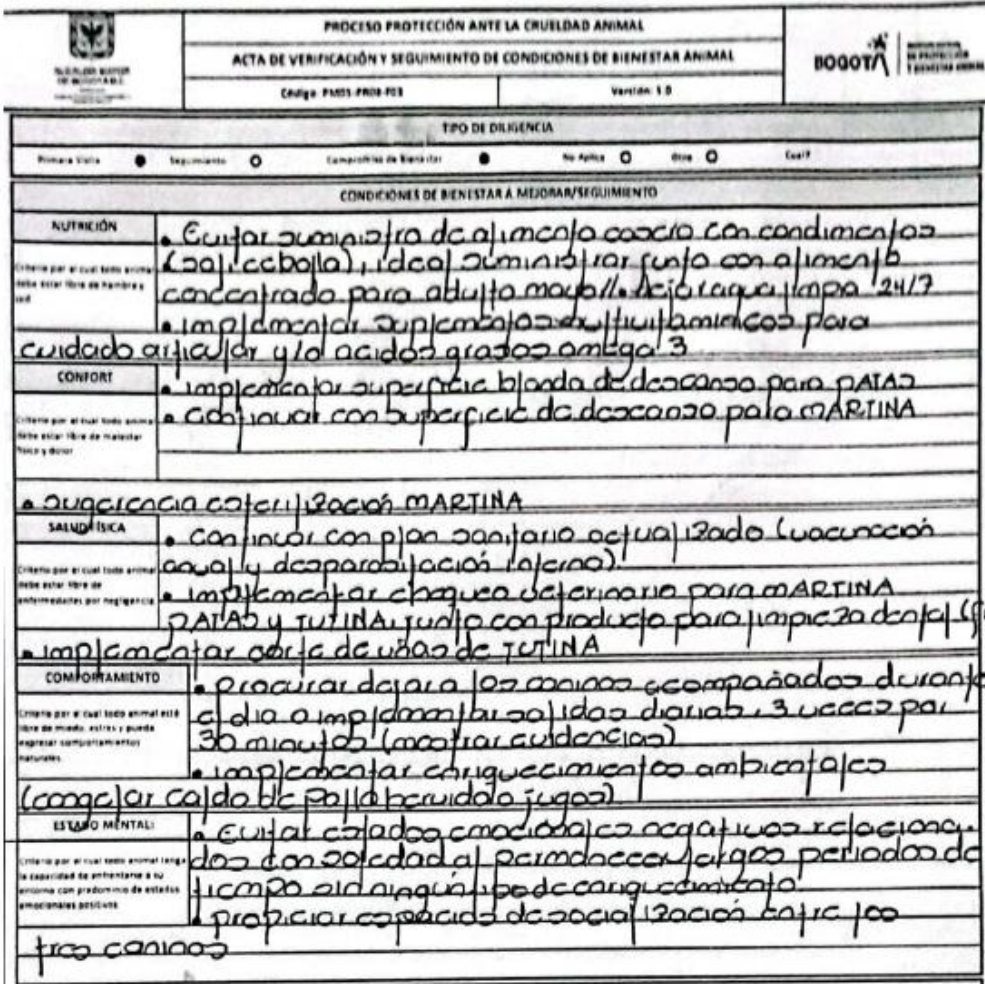 PROCESO PROTECCIÓN ANTE LA CRUELDAD ANIMAL
ACTA DE VERIFICACIÓN Y SEGUIMIENTO DE CONDICIONES DE BIENESTAR ANIMAL
Código: PM05-PR08-F03 Versión: 1.0
BOGOTÁ
TIPO DE DILIGENCIA
Primera Visita Seguimiento Compromiso de Bienestar No Aplica Otra Cual?
CONDICIONES DE BIENESTAR A MEJORAR/SEGUIMIENTO
NUTRICIÓN
Criterio por el cual todo animal
debe estar libre de hambre y
sed
• Evitar suministro de alimento casero con condimentos
(sal, cebolla), ideal suministrar junto con alimento
concentrado para adulto mayor//. Dejar agua limpia 24/7
• implementar suplementos multivitamínicos para
cuidado articular y/o acidos grasos omega 3
CONFORT
Criterio por el cual todo animal
debe estar libre de malestar
físico y dolor
• implementar superficie blanda de descanso para PATAS
• continuar con superficie de descanso para MARTINA
• sugerencia esterilización MARTINA
SALUD FÍSICA
Criterio por el cual todo animal
debe estar libre de
enfermedades por negligencia
• continuar con plan sanitario actualizado (vacunación
anual y desparasitación interno).
• implementar chequeo veterinario para MARTINA
PATAS y TUTINA, junto con producto para limpieza dental
• implementar corte de uñas de TUTINA
COMPORTAMIENTO
Criterio por el cual todo animal esté
libre de miedo, estrés y pueda
expresar comportamientos
naturales.
• procurar dejar a los caninos acompañados durante
el dia o implementar salidas diarias, 3 veces por
30 minutos (mostrar evidencias)
• implementar enriquecimientos ambientales
(congelar caldo de pollo hervido o jugos)
ESTADO MENTAL:
Criterio por el cual todo animal tenga
la capacidad de enfrentarse a su
entorno con predominio de estados
emocionales positivos
• Evitar estados emocionales negativos relaciona-
dos con soledad al permanecer largos periodos de
tiempo sin ningún tipo de enriquecimiento.
• propiciar espacios de socialización entre los
tres caninos